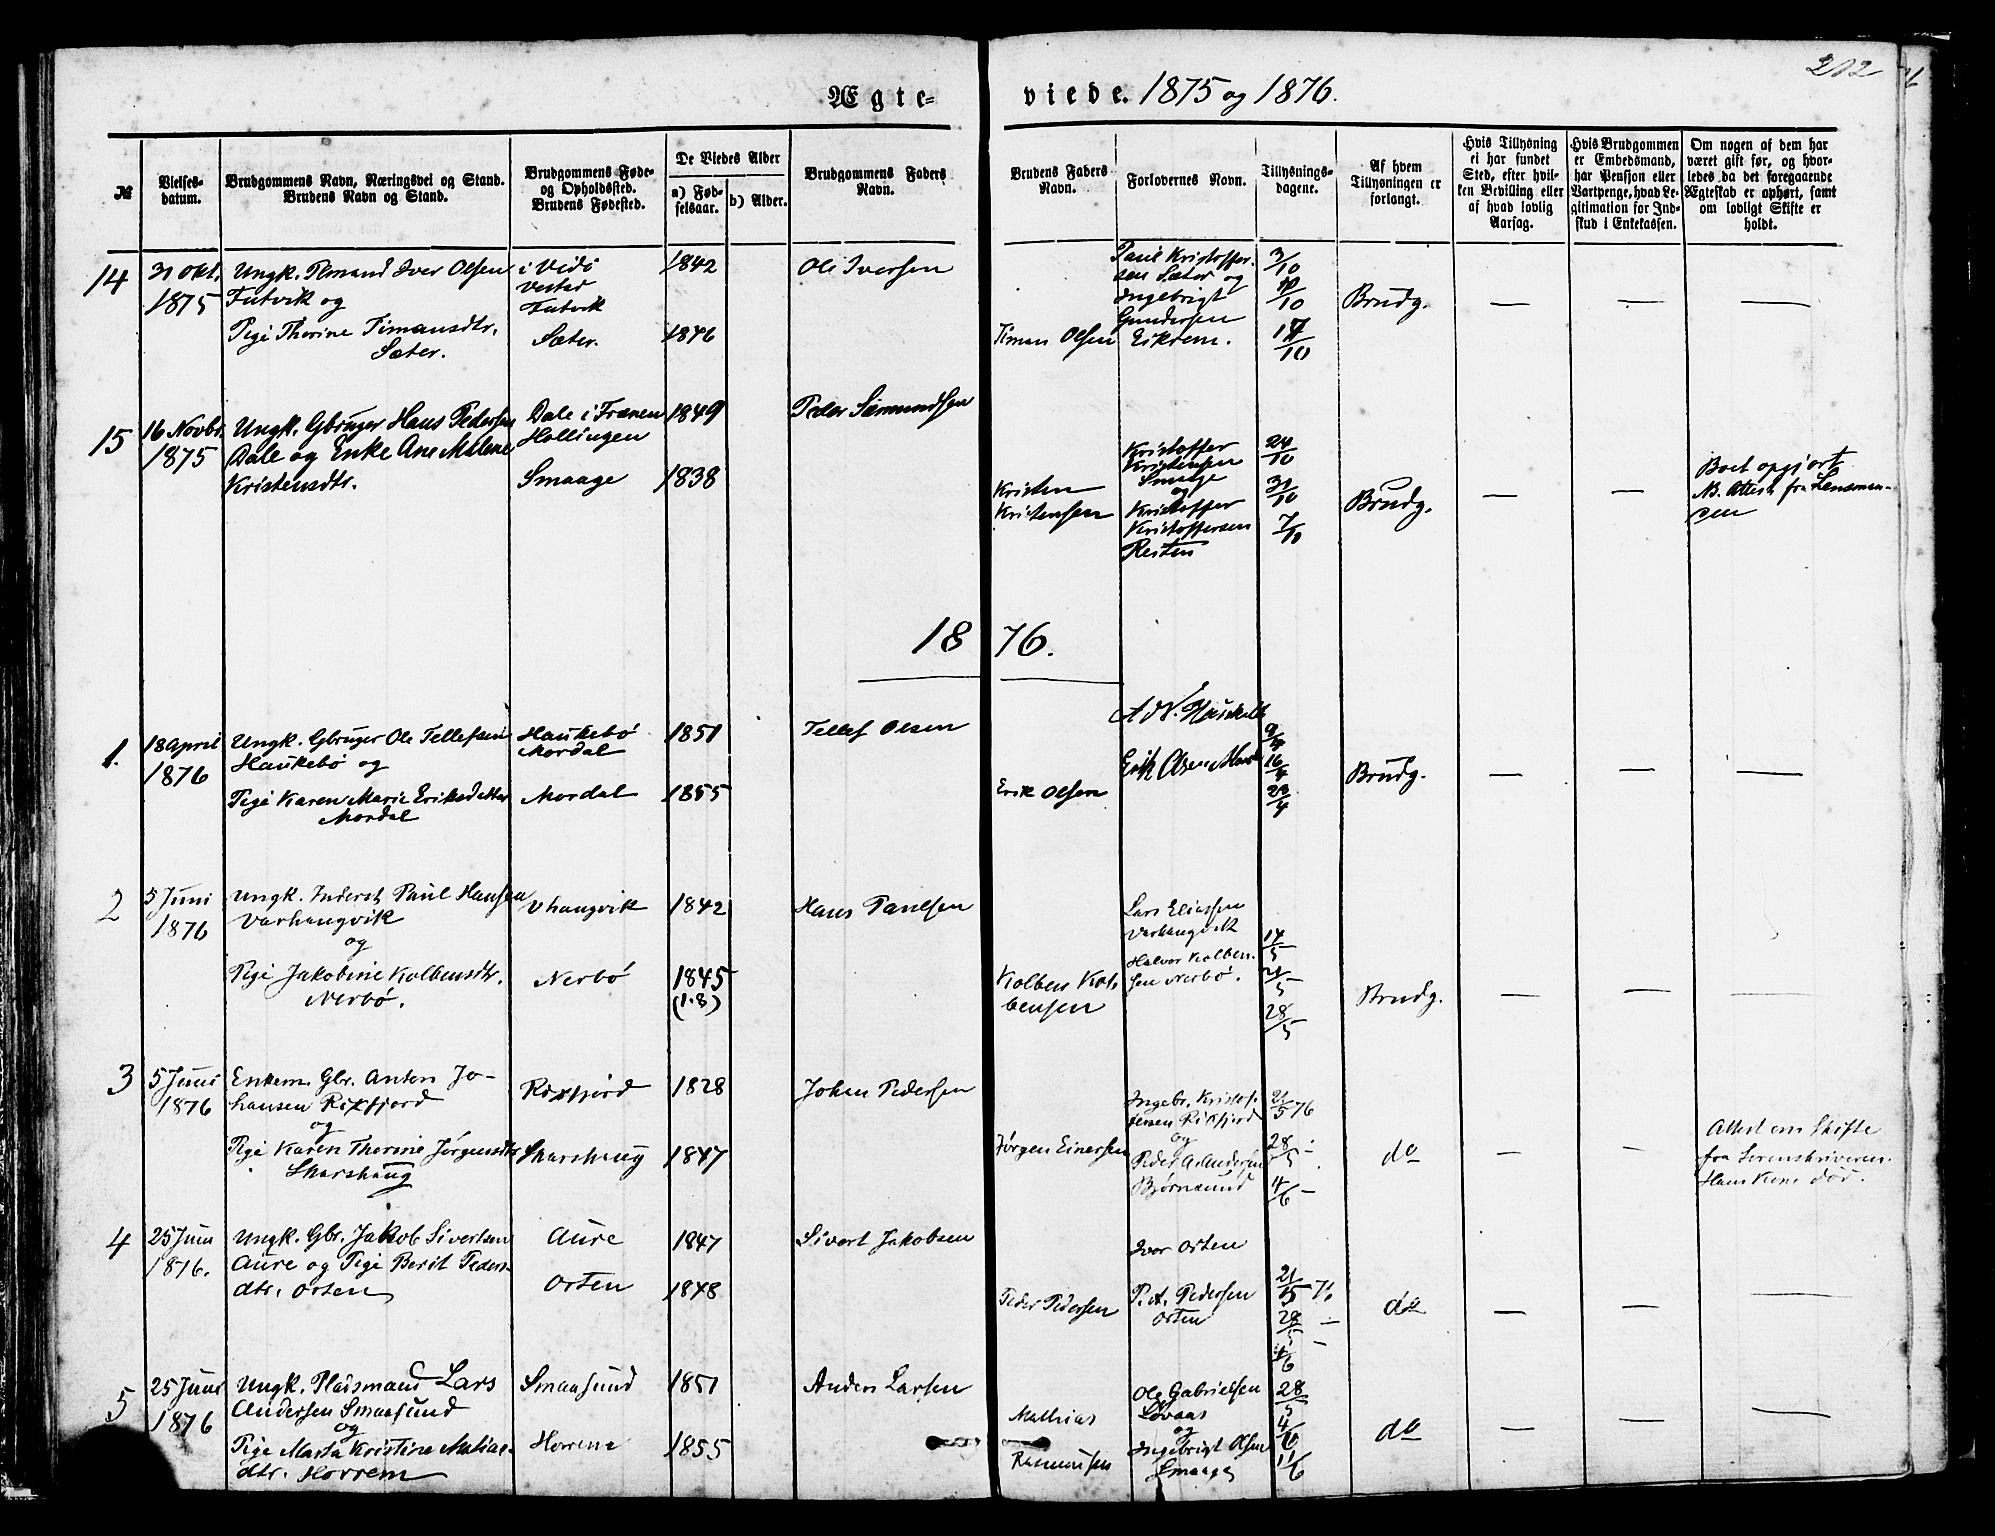 202
Ægte- viede. 1875 og 1876.
№
Vielses-
datum.
Brudgommens Navn, Næringsvei og Stand.
Brudens Navn og Stand.
Brudgommens Føde-
og Opholdssted.
Brudens Fødested.
De Viedes Alder
a) Fød-
selsaar.
b) Alder.
Brudgommens Faders
Navn.
Brudens Faders
Navn.
Forlovernes Navn.
Tillysnings-
dagene.
Af hvem
Tillysningen er
forlangt.
Hvis Tillysning
ei har fundet
Sted, efter hvil-
ken Bevilling eller
af hvad lovlig
Aarsag.
Hvis Brudgommen
er Embedsmand,
har Pension eller
Vartpenge, hvad Le-
gitimation for Ind-
skud i Enkekassen.
Om nogen af dem har
været gift før, og hvor-
ledes da det foregaaende
Ægteskab er ophørt, samt
om lovligt Skifte er
holdt.
14
31 Okt.
1875
Ungk. Iver Olsen
Futvik og
Pige Thorine Timansdtr.
Sæter.
i Vedö
Vestad
Futvik
Sæter.
1842
1846
Ole Iversen
Timan Olsen
Paul Kristoffer-
sen Sæter og
Ingebrigt
Gundersen
Eikrem.
3/10
10/10
17/10
Brudg.
— — —
15
16 Novbr.
1875
Ungk. Gbruger Hans Pedersen
Dale og Enke Ane Malene
Kristensdtr.
Dale i Frænen
Hollingen
Smaage
1849
1838
Peder Sæmundsen
Kristen
Kristensen
Kristoffer
Kristensen
Smaage
og
Kristoffer
Kristoffersen
Reiten
24/10
31/10
7/10
Brudg.
— —
Boet opgjort
NB. Attest fra Lensman-
den
1876.
1.
18 April
1876
Ungk. Gbruger Ole Tellefsen
Haukebö og
Pige Karen Marie Eriksdatter
Mordal
Haukebö
Mordal
Mordal
1851
1855
Tellef Olsen
Erik Olsen
Erik Olsen
9/4
16/4
23/4
Brudg.
— — —
2
5 Juni
1876
Ungk. Inderst Paul Hansen
Varhaugvik
og
Pige Jakobine Kolbensdtr.
Nerbö.
Vhaugvik
Nerbö
1842
1845
(1.8)
Hans Paulsen
Kolben Kol-
bensen
Lars Eliassen
Varhaugvik
Halvor Kolben-
sen Nerbö.
14/5
21/5
28/5
Brudg.
— — —
3
5 Juni
1876
Enkem. Gbr. Anton Jo-
hansen Rixfjord
og
Pige Karen Thorine Jörgensdtr
Skarshaug
Rixfjord
Skarshaug
1828
1847
Johan Pedersen
Jörgen Einersen
Ingebr. Kristof-
fersen Rixfjord
og
Peder A. Andersen
Björnsund
21/5 76
28/5 -
4/6 -
do
— —
Attest om Skifte
fra Sorenskriveren.
Hans Kone död.
4
25 Juni
1876.
Ungk. Gbr. Jakob Sivertsen
Aure og Pige Berit Peders-
dtr. Orten
Aure
Orten
1847
1848
Sivert Jakobsen
Peder Pedersen
Iver Orten
P. A. Pedersen
Orten
21/5 76
28/5 -
4/6 -
do
— — —
5
25 Juni
1876
Ungk. Pladsmand Lars
Andersen Smaasund
og
Pige Marta Kristine Matias-
dtr. Horrem
Smaasund
Horrem
1851
1855
Anders Larsen
Mathias
Rasmussen
Ole Gabrielsen
Lövaas
og
Ingebrigt Olsen
Smaage
28/5
4/6
11/6
do
— — —